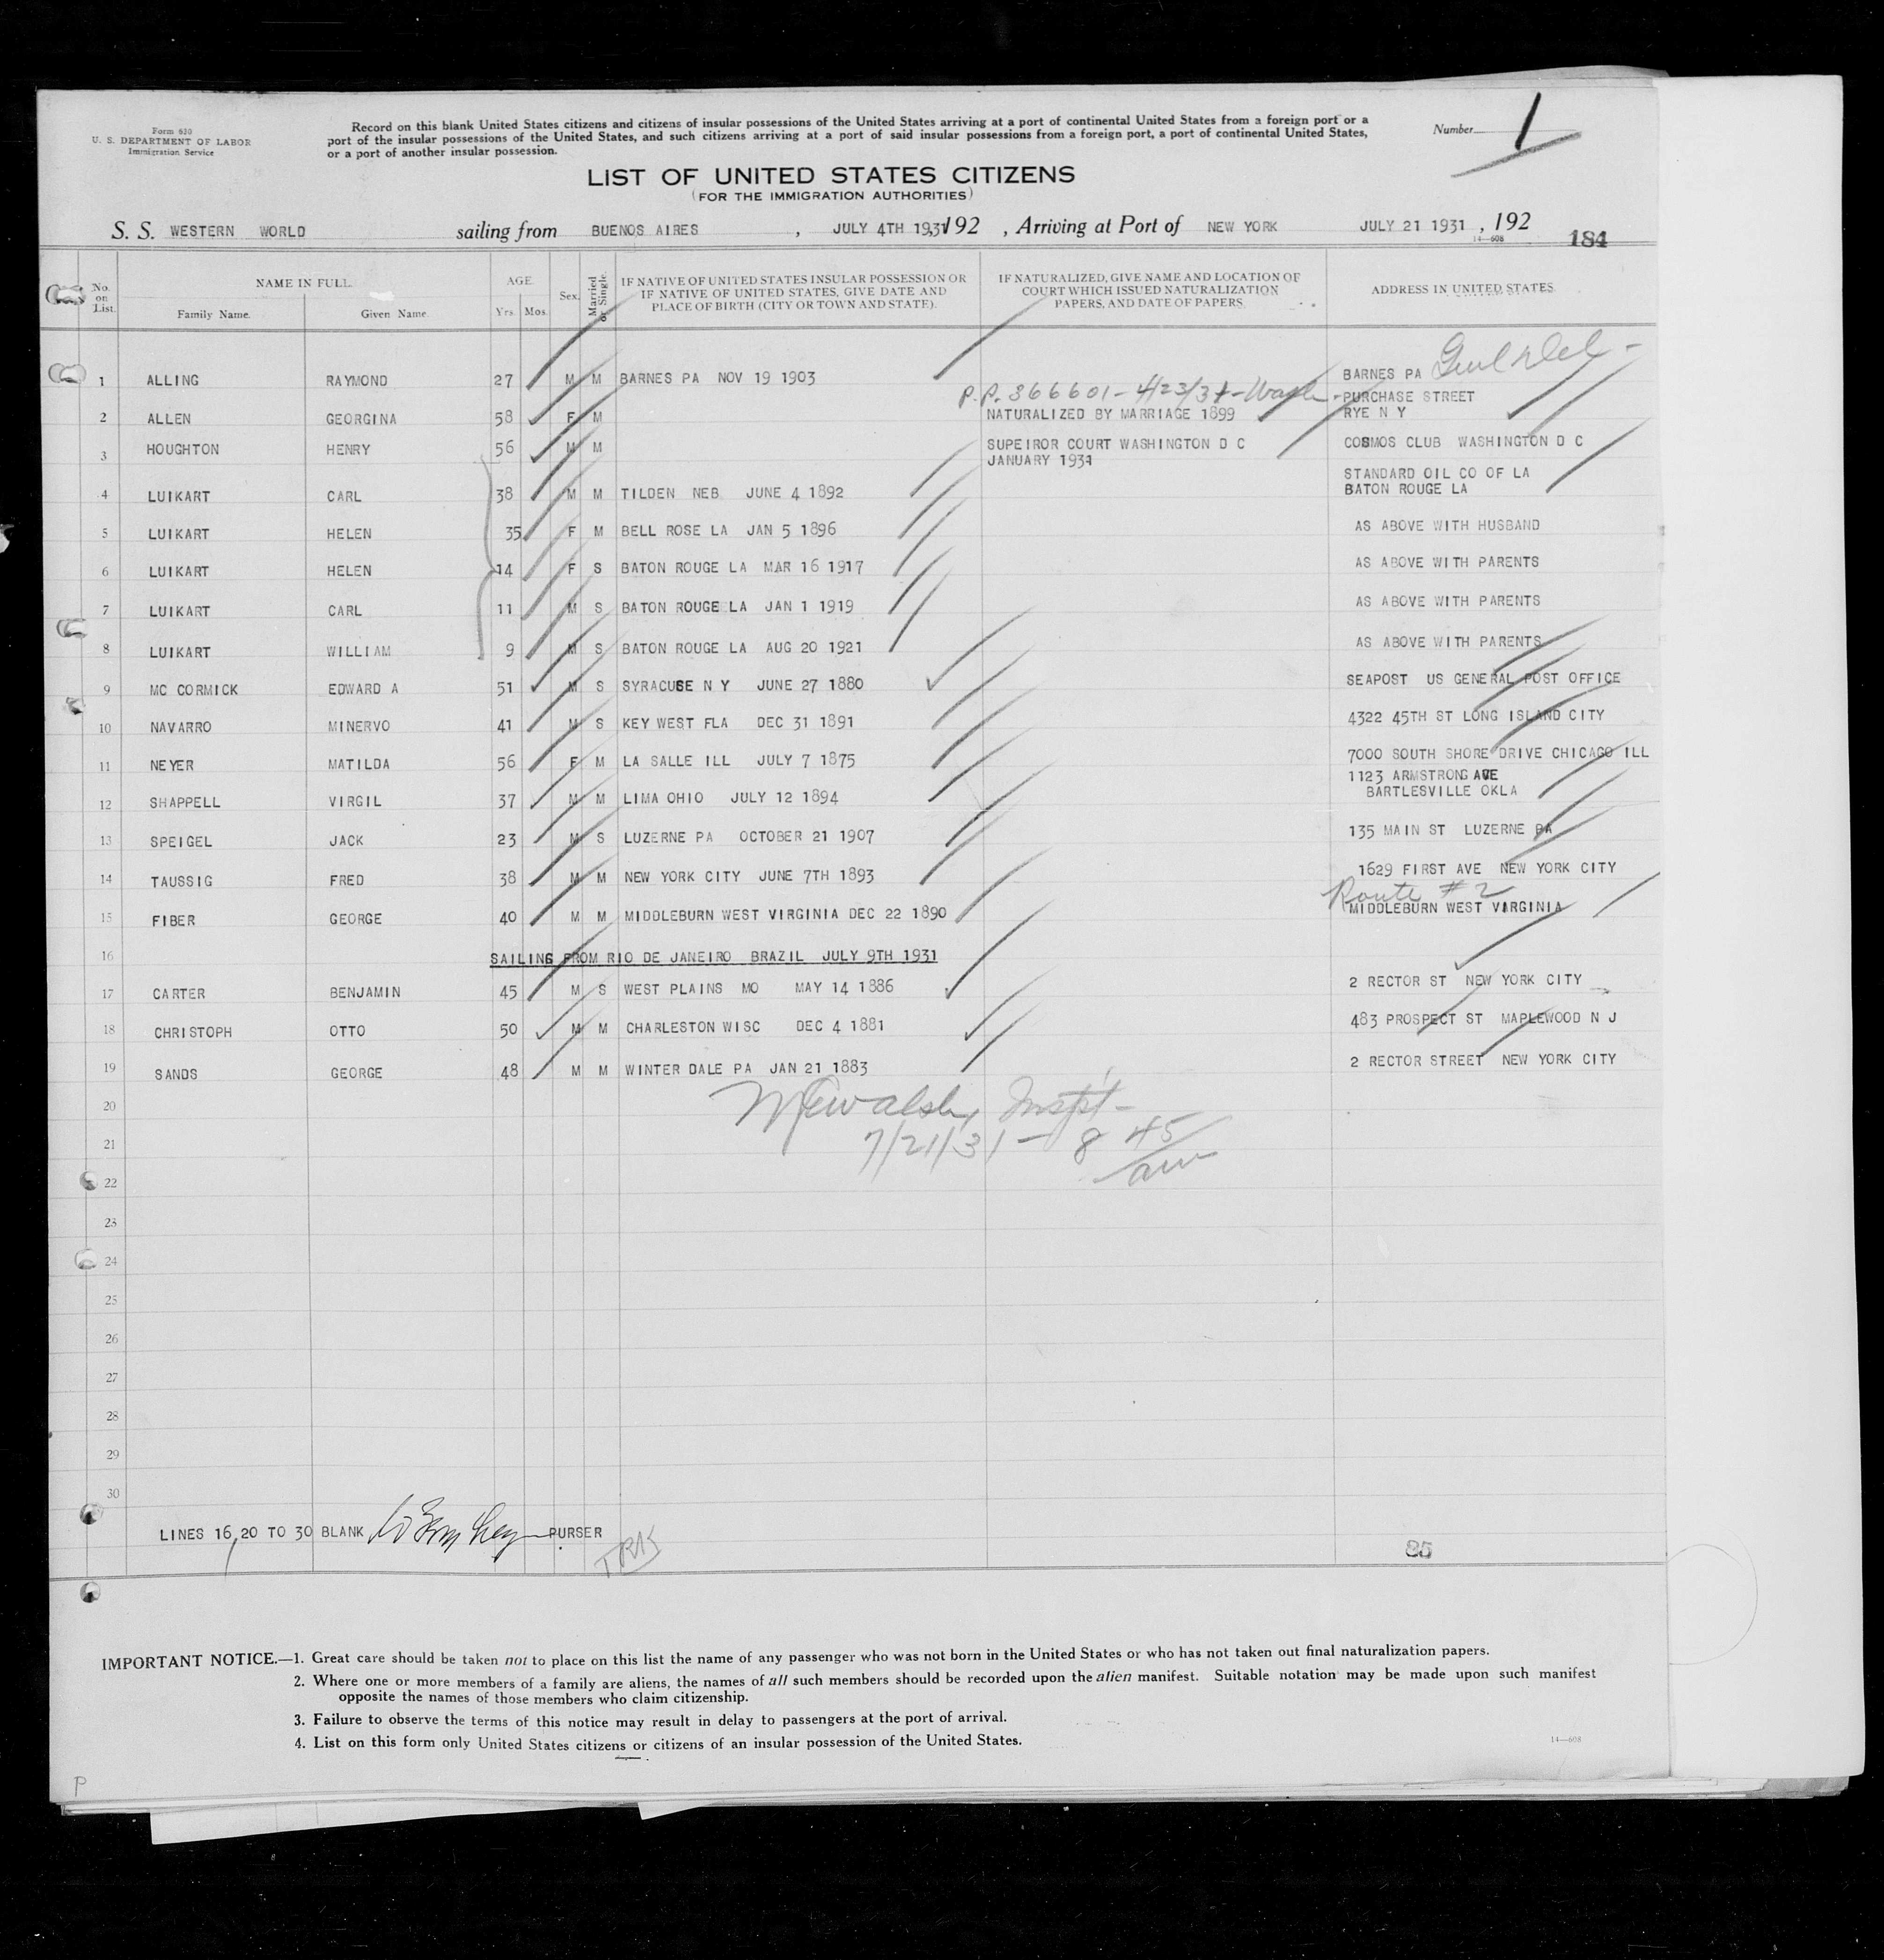 Form 630
U. S. DEPARTMENT OF LABOR
Immigration Service
Record on this blank United States citizens and citizens of insular possessions of the United States arriving at a port of continental United States from a foreign port or a
port of the insular possessions of the United States, and such citizens arriving at a port of said insular possessions from a foreign port, a port of continental United States,
or a port of another insular possession.
Number 1
LIST OF UNITED STATES CITIZENS
(FOR THE IMMIGRATION AUTHORITIES)
S. S. WESTERN WORLD sailing from BUENOS AIRES , JULY 4TH 1931 192 , Arriving at Port of NEW YORK JULY 21 1931 , 192
14—608
184
No. on List. NAME IN FULL Family Name. Given Name. AGE Yrs. Mos. Sex. Married or Single. IF NATIVE OF UNITED STATES INSULAR POSSESSION OR IF NATIVE OF UNITED STATES, GIVE DATE AND PLACE OF BIRTH (CITY OR TOWN AND STATE). IF NATURALIZED, GIVE NAME AND LOCATION OF COURT WHICH ISSUED NATURALIZATION PAPERS, AND DATE OF PAPERS. ADDRESS IN UNITED STATES.
1 ALLING RAYMOND 27 M M BARNES PA NOV 19 1903 BARNES PA
P.P. 366601 - 4/23/31 - Wash -
PURCHASE STREET
2 ALLEN GEORGINA 58 F M NATURALIZED BY MARRIAGE 1899 RYE N Y
3 HOUGHTON HENRY 56 M M SUPEIROR COURT WASHINGTON D C COSMOS CLUB WASHINGTON D C
JANUARY 1931
STANDARD OIL CO OF LA
4 LUIKART CARL 38 M M TILDEN NEB JUNE 4 1892 BATON ROUGE LA
5 LUIKART HELEN 35 F M BELL ROSE LA JAN 5 1896 AS ABOVE WITH HUSBAND
6 LUIKART HELEN 14 F S BATON ROUGE LA MAR 16 1917 AS ABOVE WITH PARENTS
7 LUIKART CARL 11 M S BATON ROUGE LA JAN 1 1919 AS ABOVE WITH PARENTS
8 LUIKART WILLIAM 9 M S BATON ROUGE LA AUG 20 1921 AS ABOVE WITH PARENTS
9 MC CORMICK EDWARD A 51 M S SYRACUSE N Y JUNE 27 1880 SEAPOST US GENERAL POST OFFICE
10 NAVARRO MINERVO 41 M S KEY WEST FLA DEC 31 1891 4322 45TH ST LONG ISLAND CITY
11 NEYER MATILDA 56 F M LA SALLE ILL JULY 7 1875 7000 SOUTH SHORE DRIVE CHICAGO ILL
1123 ARMSTRONG AVE
12 SHAPPELL VIRGIL 37 M M LIMA OHIO JULY 12 1894 BARTLESVILLE OKLA
13 SPEIGEL JACK 23 M S LUZERNE PA OCTOBER 21 1907 135 MAIN ST LUZERNE PA
14 TAUSSIG FRED 38 M M NEW YORK CITY JUNE 7TH 1893 1629 FIRST AVE NEW YORK CITY
Route # 2
15 FIBER GEORGE 40 M M MIDDLEBURN WEST VIRGINIA DEC 22 1890 MIDDLEBURN WEST VIRGINIA
16 SAILING FROM RIO DE JANEIRO BRAZIL JULY 9TH 1931
17 CARTER BENJAMIN 45 M S WEST PLAINS MO MAY 14 1886 2 RECTOR ST NEW YORK CITY
18 CHRISTOPH OTTO 50 M M CHARLESTON WISC DEC 4 1881 483 PROSPECT ST MAPLEWOOD N J
19 SANDS GEORGE 48 M M WINTER DALE PA JAN 21 1883 2 RECTOR STREET NEW YORK CITY
20
Walsh, Inspt -
21 7/21/31 - 8 45
am
22
23
24
25
26
27
28
29
30
LINES 16, 20 TO 30 BLANK PURSER
TRK
85
IMPORTANT NOTICE.—1. Great care should be taken not to place on this list the name of any passenger who was not born in the United States or who has not taken out final naturalization papers.
2. Where one or more members of a family are aliens, the names of all such members should be recorded upon the alien manifest. Suitable notation may be made upon such manifest
opposite the names of those members who claim citizenship.
3. Failure to observe the terms of this notice may result in delay to passengers at the port of arrival.
4. List on this form only United States citizens or citizens of an insular possession of the United States.
14—608
P